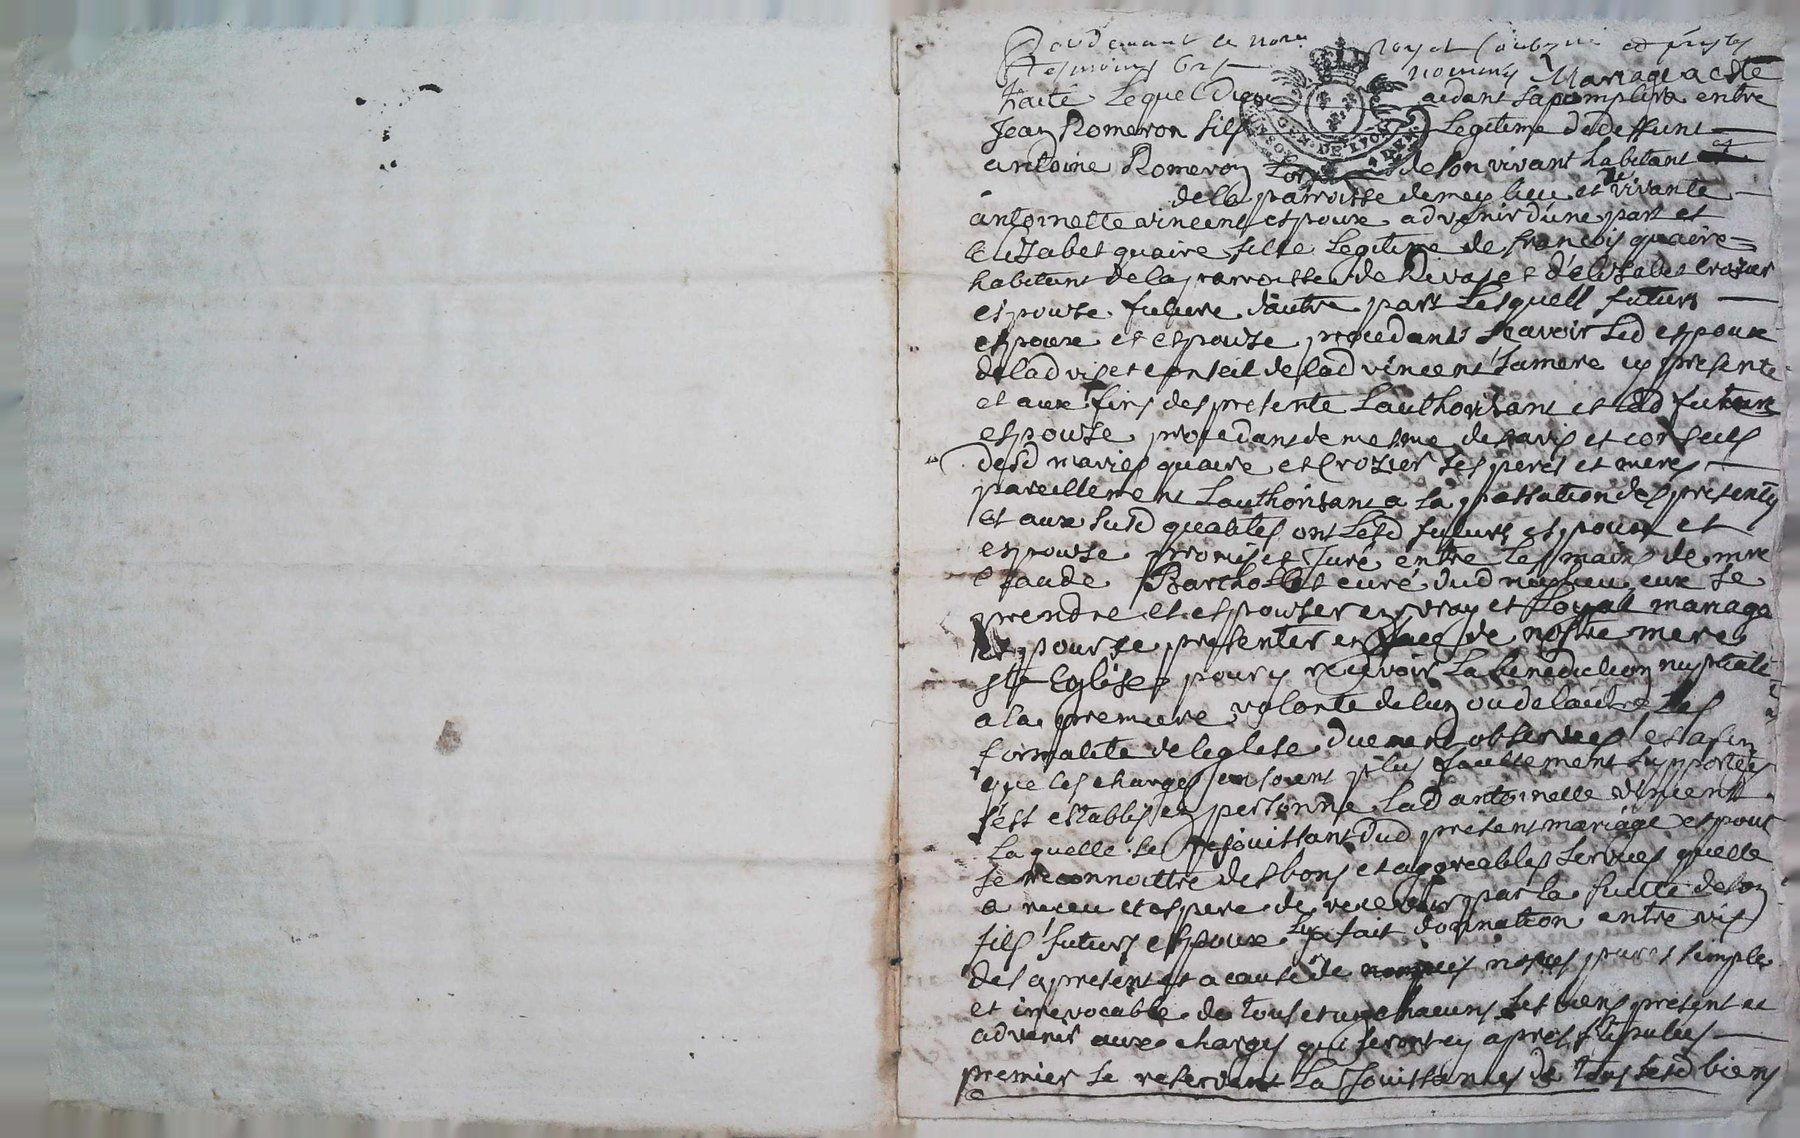 Pardevant le no.re royal soubzné et présts
tesmoins bas nommés Mariage a esté
traité Lequel Dieu aidant sacomplira entre
Jean Romeron fils Legitime de deffunt
GEN. DE LYON
antoine Romeron de son vivant habitant
de la parroisse de meylieu et de vivante
antoinette vincent espoux advenir dune part et
Elizabet quaire fille Legitime de francois quaire
habitant de la parroisse de Rivas et d'elizabet Crozier
espouze future d'autre part Lesquell futurs
espoux et espouze procedants scavoir Led espoux
de ladvis et conseil de lad vincent sa mere icy presente
et aux fins des presente Lauthorizant et lad future
espouze procedant de mesme des avis et conseils
desd mariés quaire et Crozier ses peres et meres
pareillement Lauthorizant a la passation des presentes
Et aux susd qualités ont Lesd futurs espoux et
espouze promis et Juré entre les mains de mre
Claude Bartholet curé dud meylieu eux se
prendre et espouzer en vray et Loyal mariage
et pour ce presenter en face de nostre mere
ste Eglise pour y recevoir La benediction nuptialle
a la premiere volonte de lun ou de lautre Les
formalite de leglise duement observées et afin
que les charges en soient plus facillement supportées
s'est establis en personne Lad antoinette vincent
Laquelle se rejouissant dud present mariage et pour
se reconnoittre des bons et agreables services quelle
a receu et espere de recevoir par la suitte de son
fils futurs espoux Luy fait donnation entre vifs
des apresent et a cause de nopces pure simple
et irrevocable de tous et un chacuns ses biens present et
advenir aux charges qui seront cy apres stipulées
premier se reservent La Jouissances de tous sesd biens